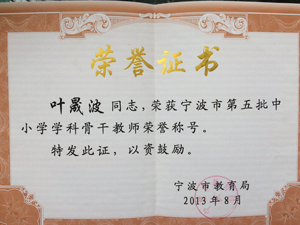 荣誉证书
叶晟波同志,荣获宁波市第五批中
小学学科骨干教师荣誉称号。
特发此证,以资鼓励。
宁波市教育局
2013年8月